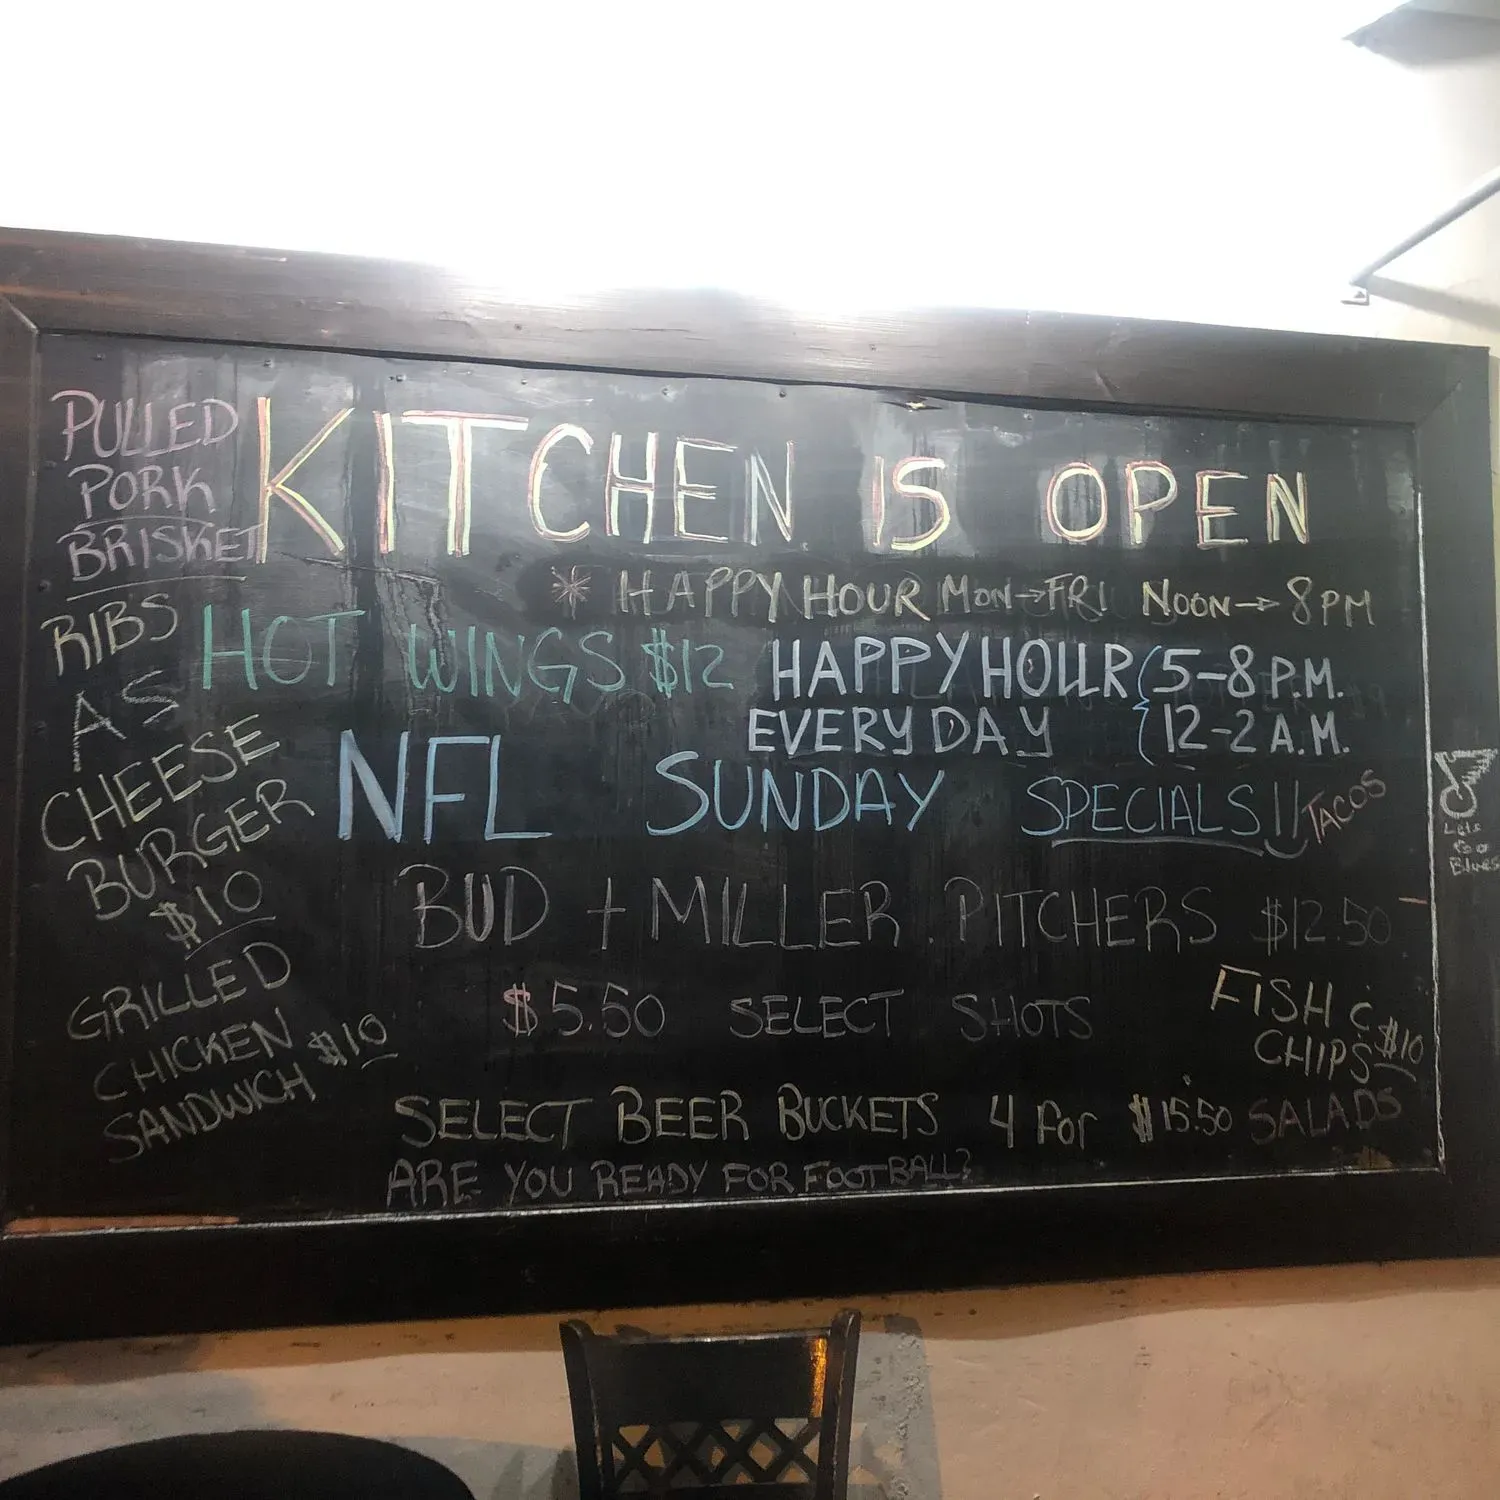 PULLED
PORK
BRISKET
RIBS
AS
CHEESE
BURGER
$10
GRILLED
CHICKEN
SANDWICH $10
KITCHEN IS OPEN
* HAPPY HOUR MON→FRI NOON→8PM
HOT WINGS $12
HAPPY HOUR (5-8 P.M.
EVERY DAY (12-2 A.M.
NFL SUNDAY SPECIALS!!
TACOS
BUD + MILLER PITCHERS $12.50
$5.50 SELECT SHOTS
FISH &
CHIPS $10
SELECT BEER BUCKETS 4 For $15.50
SALADS
ARE YOU READY FOR FOOTBALL?
Blues